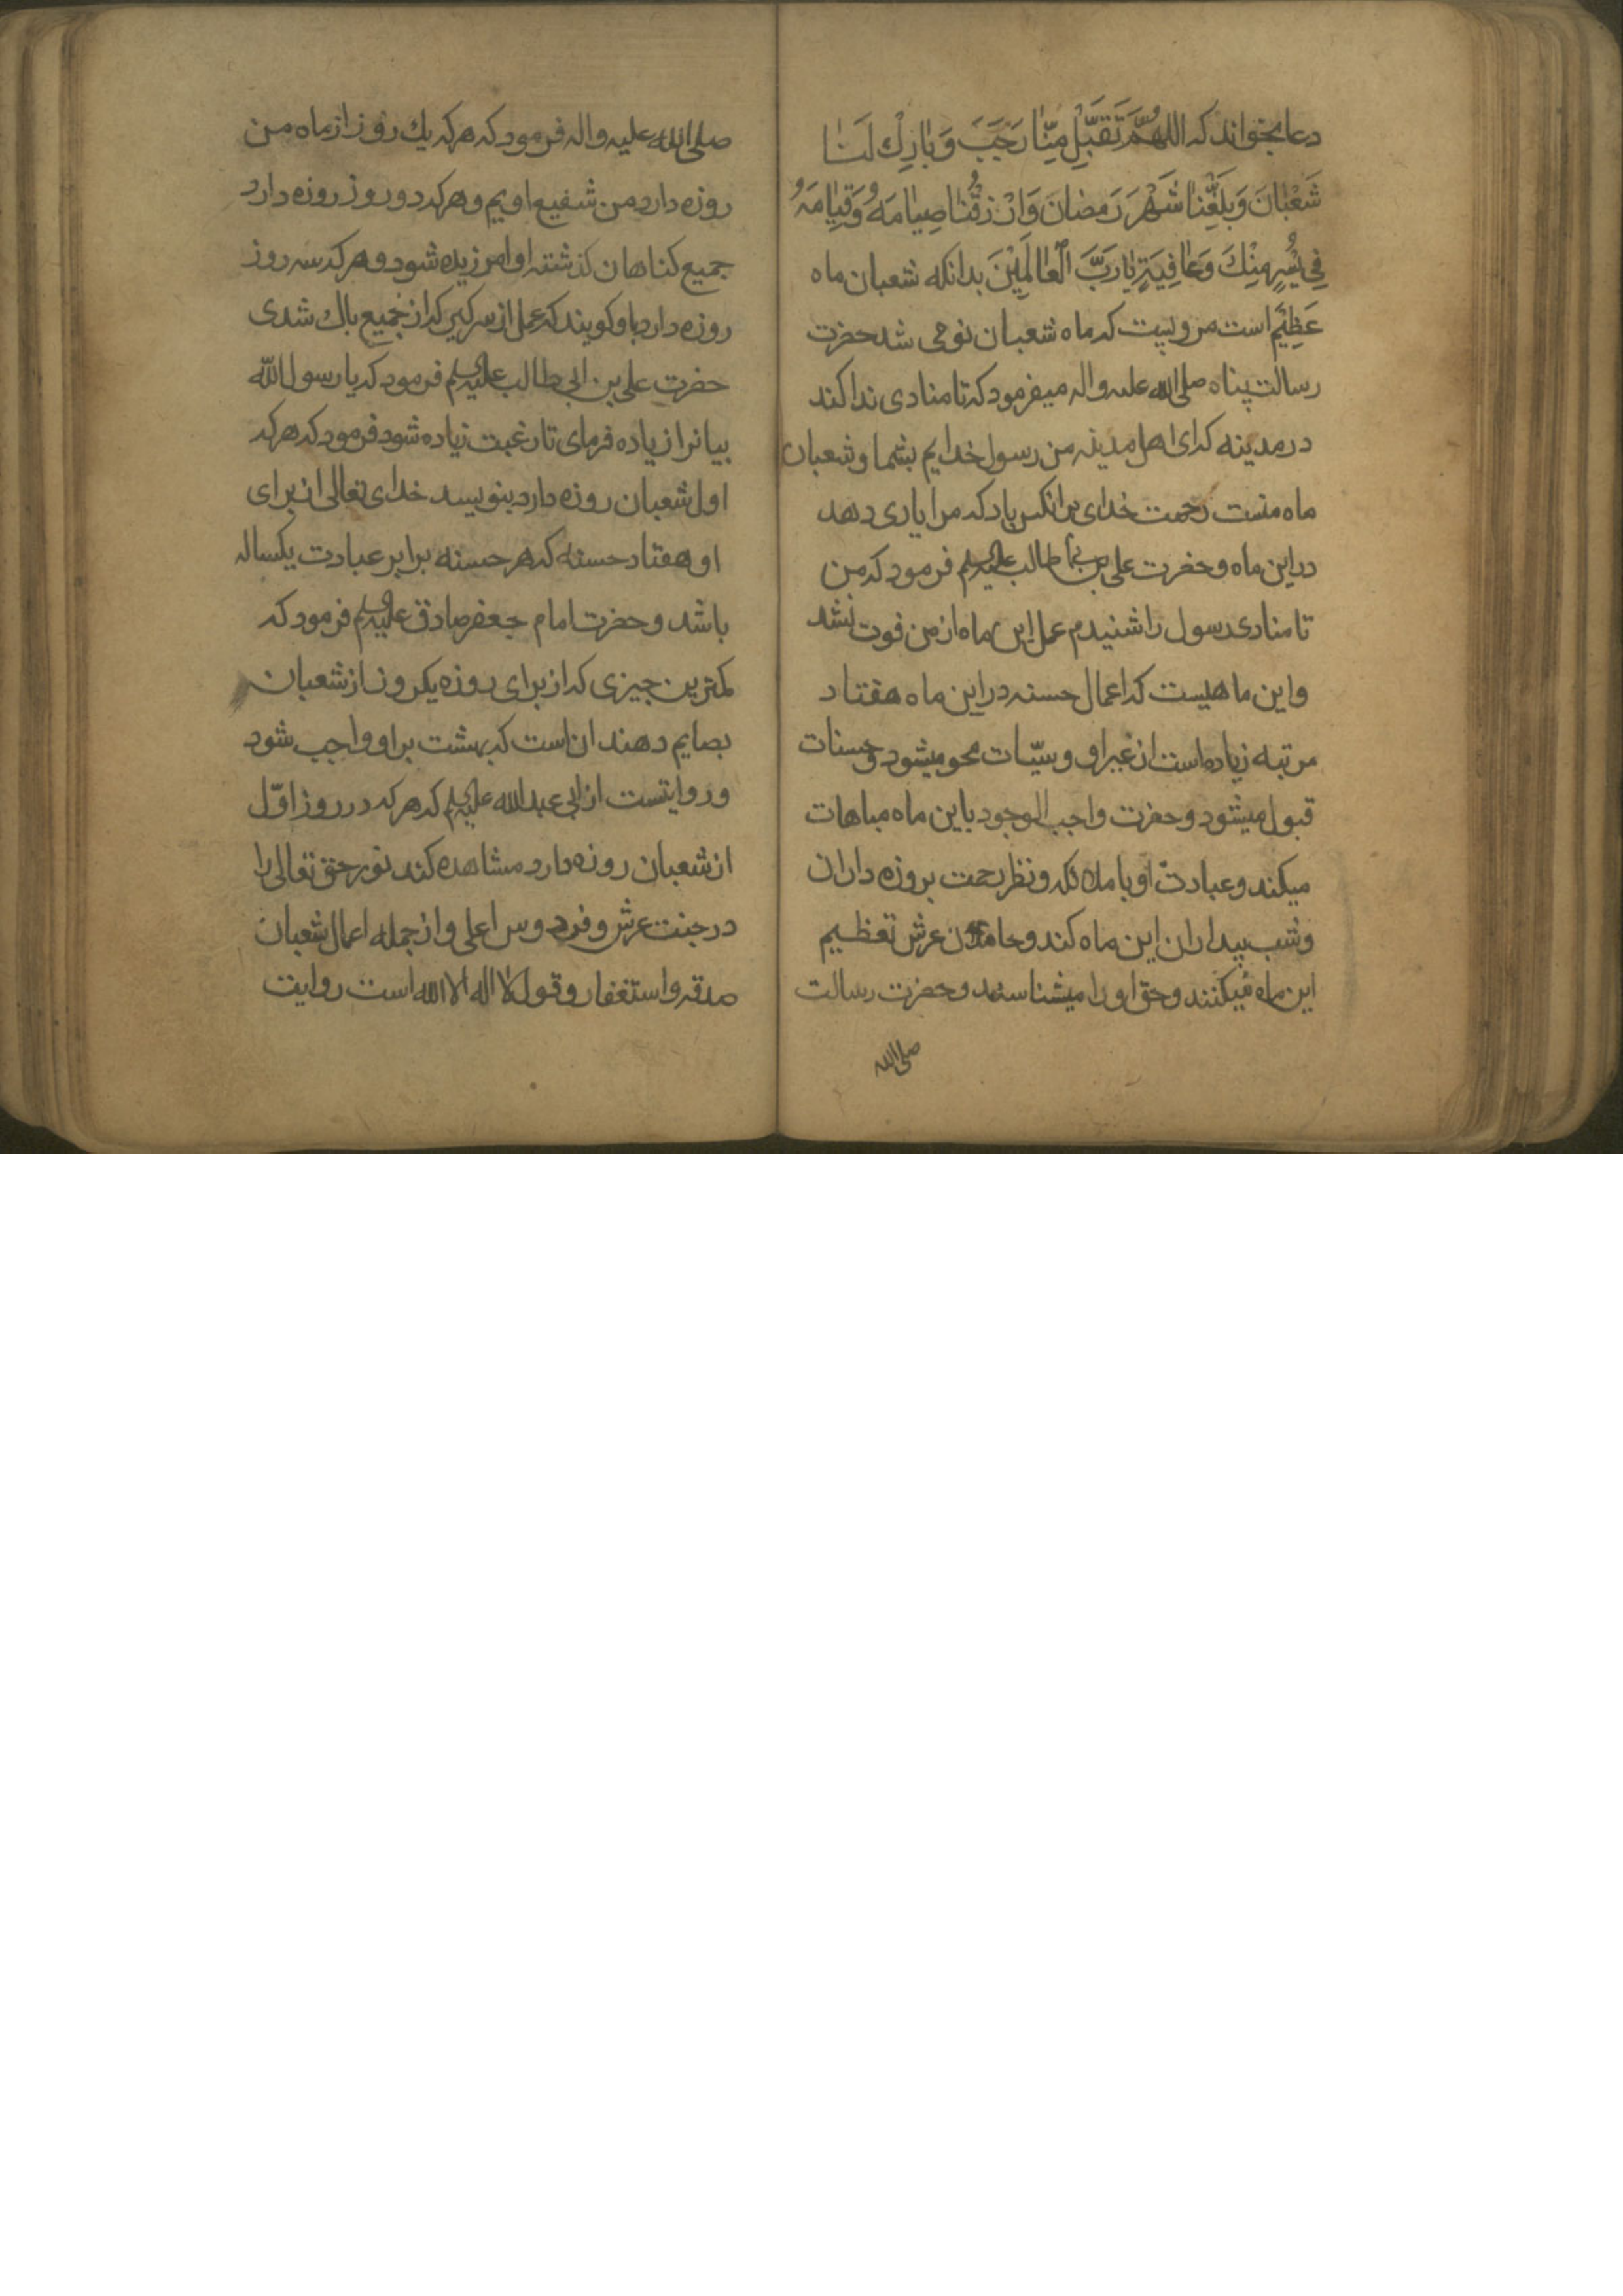 دعا بخواند که اللهُمَّ تَقَبَّلْ مِنّٰا رَجَبَ وَبٰارِكْ لَنٰا
شَعْبٰانَ وَبَلِّغْنٰا شَهْرَ رَمَضٰانَ وَارْزُقْنٰا صِيٰامَهُ وَقِيٰامَهُ
فِي يُسْرٍ مِنْكَ وَعٰافِيَةٍ يٰا رَبَّ الْعٰالَمِيْنَ بدانکه شعبان ماه
عَظِيْم است مرویست که ماه شعبان نومی شد حضرت
رسالت پناه صلی الله علیه واله میفرمود که تا منادی ندا کند
در مدینه که ای اهل مدینه من رسول خدایم بشما و شعبان
ماه منست رحمت خدای برانکس باد که مرا یاری دهد
در این ماه و حضرت علی بن ابی طالب علیه السلم فرمود که من
تا منادی رسول را شنیدم عمل این ماه از من فوت نشد
و این ماهیست که اعمال حسنه در این ماه هفتاد
مرتبه زیاده است از غیر او و سیّیات محو میشود و حسنات
قبول میشود و حضرت واجب الوجود باین ماه مباهات
میکند و عبادت او با ملائکه و نظر رحمت بروزه داران
و شب بیداران این ماه کند و حاملان عرش تعظیم
این ماه میکنند و حق او را میشناسند و حضرت رسالت
صلی الله
صلی الله علیه واله فرمود که هر که یك روز از ماه من
روزه دارد من شفیع اویم و هر که دو روز روزه دارد
جمیع کناهان کذشته او امرزیده شود و هر که سه روز
روزه دارد باو کویند که عمل از سر کیر که از جمیع باك شدی
حضرت علی بن ابی طالب علیه السلم فرمود که یا رسول الله
بیانرا زیاده فرمای تا رغبت زیاده شود فرمود که هر که
اول شعبان روزه دارد بنویسد خدای تعالی از برای
او هفتاد حسنه که هر حسنه برابر عبادت یکساله
باشد و حضرت امام جعفر صادق علیه السلم فرمود که
کمترین جیزی که از برای روزه یکروز از شعبان
بصایم دهند ان است که بهشت بر او واجب شود
و روایتست از ابی عبد الله علیه السلم که هر که در روز اوّل
از شعبان روزه دارد مشاهده کند نور حق تعالی را
در جنت عرش و فردوس اعلی و از جمله اعمال شعبان
صدقه و استغفار و قول لا اله الا الله است روایت